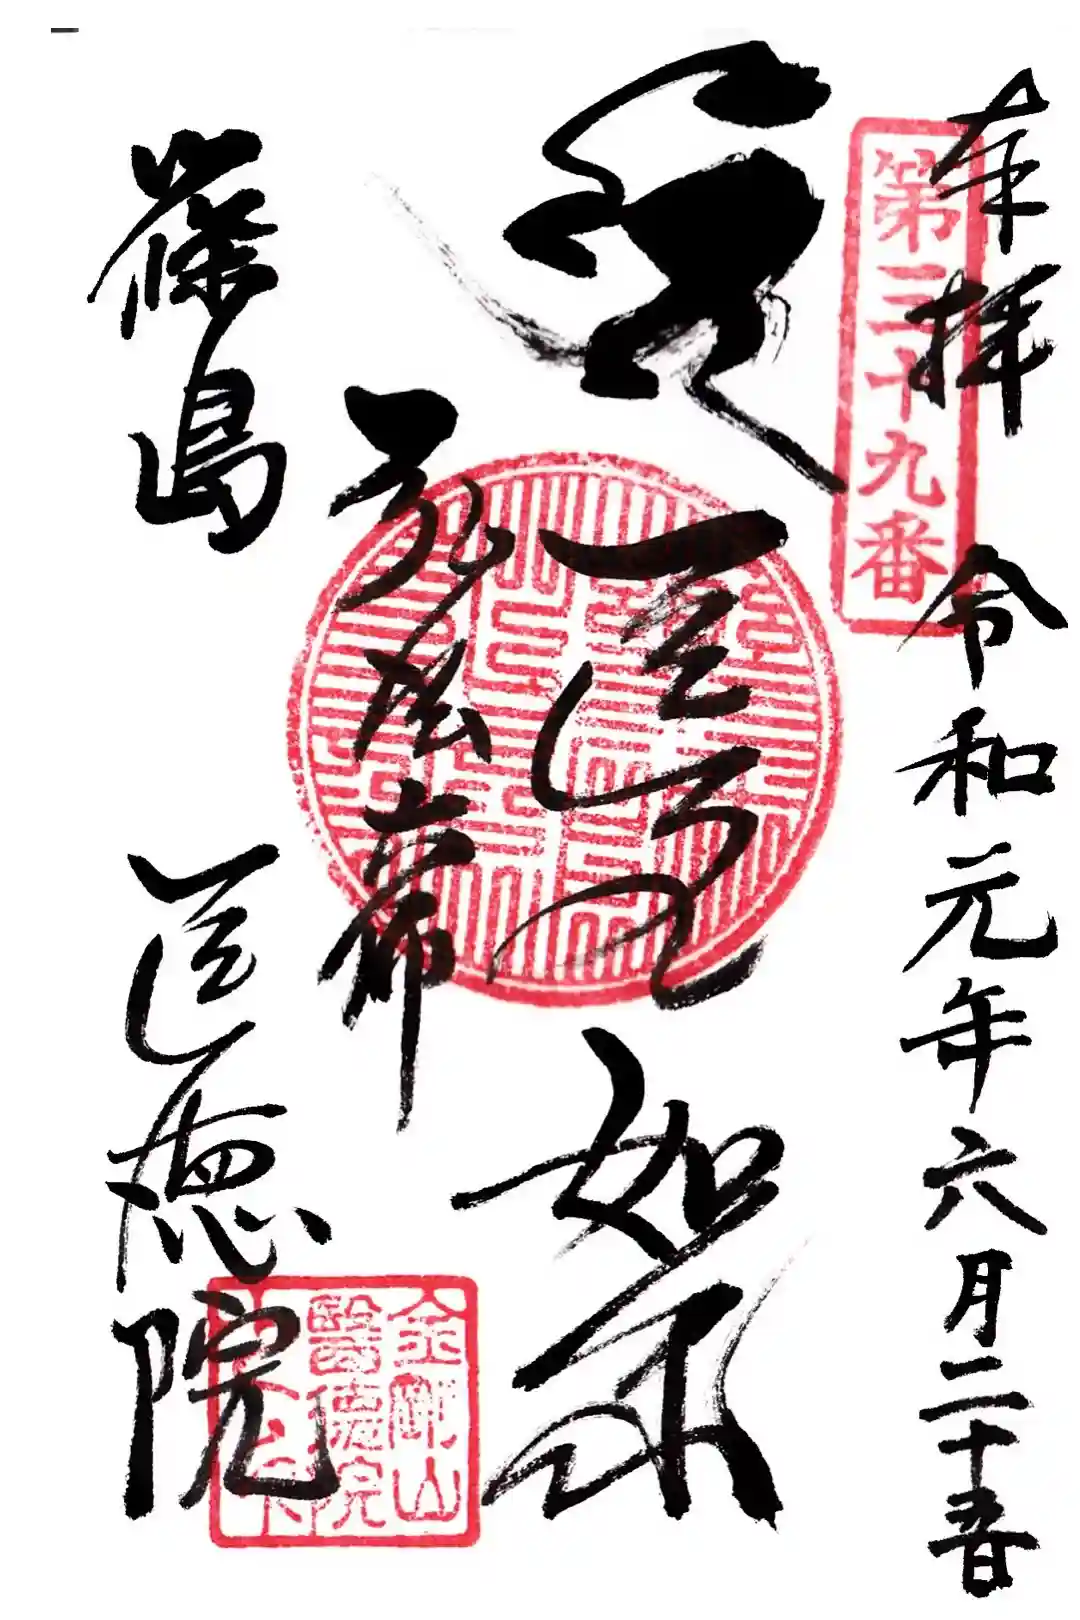 奉拝
令和元年六月二十五日
第三十九番
医王如来
弘法大師
篠島
医徳院
金剛山
醫徳院